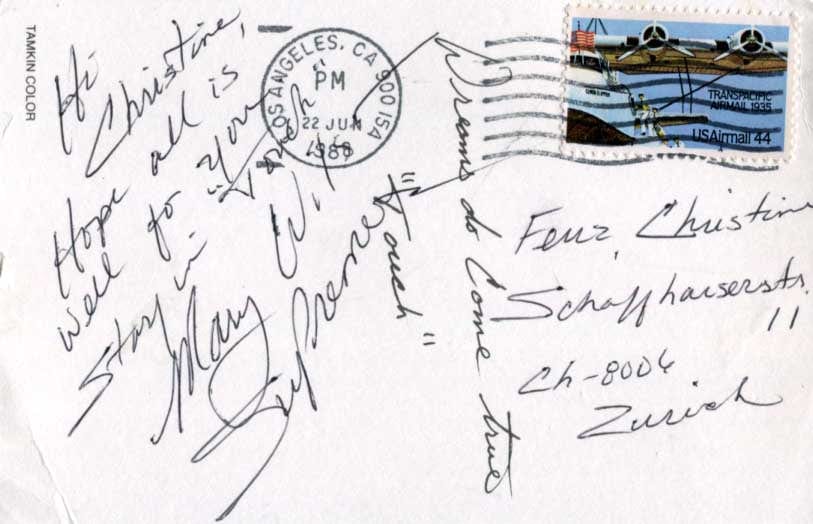 TAMKIN COLOR
Hi
Christine,
Hope all is
well for "you"
Stay in Touch
Mary Wilson
Supreme
"Touch"
Dreams do Come true
LOS ANGELES, CA 900 15A
PM
22 JUN
1986
TRANSPACIFIC
AIRMAIL 1935
USAirmail 44
Feuz, Christine
Schaffhauserstr.
11
Ch-8006
Zurich